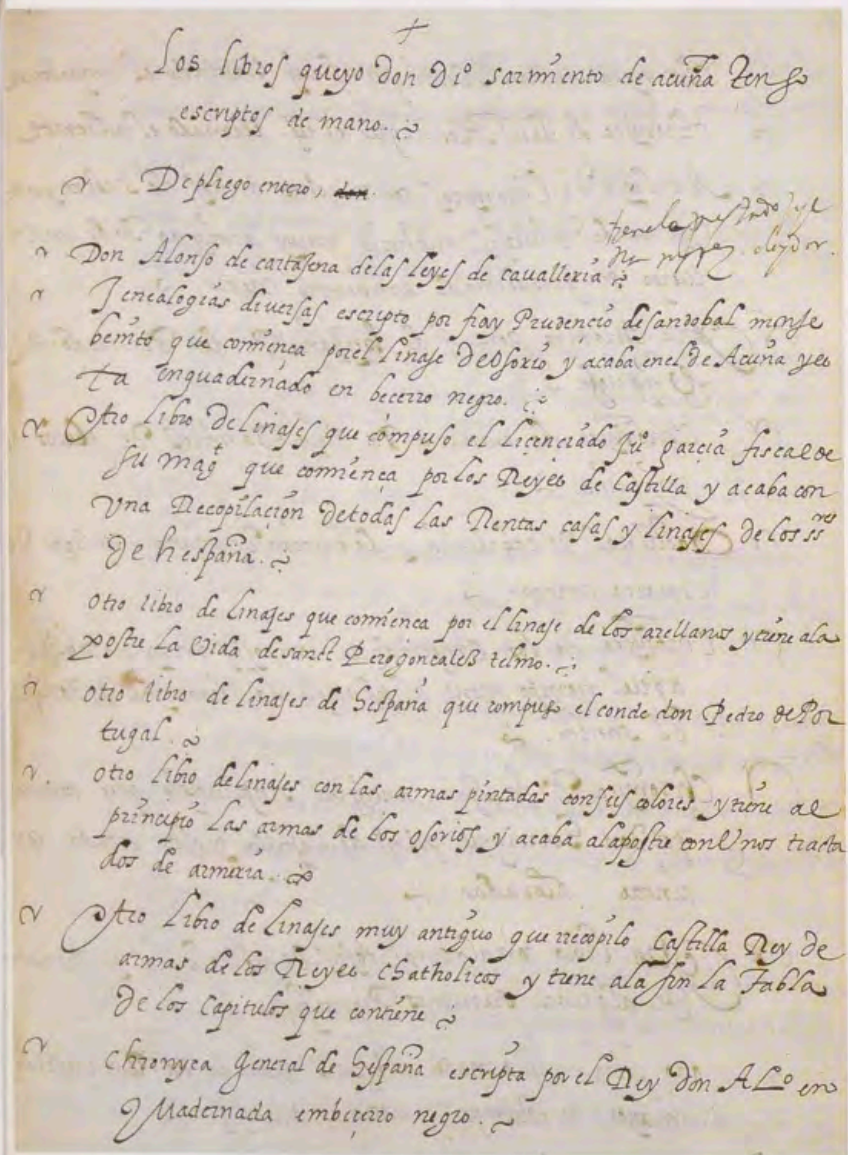 Los libros que yo don Di° sarmiento de acuña Tengo
escriptos de mano.
De pliego entero,
tienela prestado
Don Alonso de cartajena de las leyes de cavalleria
Jenealogias diversas escripto por fray Prudencio de sandobal monje
benito que comiença por el linaje de osorio y acaba en el de Acuña y es
ta enquadernado en becerro negro.
Otro libro de linajes que compuso el licenciado Ju° garcia fiscal de
su magt que comiença por los Reyes de Castilla y acaba con
una Recopilacion de todas las Rentas casas y linajes de los ssres
de hespaña.
otro libro de linajes que comiença por el linaje de los arellanos y tiene a la
postre la vida de sanct Pero gonçalez telmo.
otro libro de linajes de hespaña que compuso el conde don Pedro de Por
tugal.
otro libro de linajes con las armas pintadas con sus colores y tiene al
principio las armas de los osorios y acaba a la postre con unos tracta
dos de armeria.
Otro Libro de linajes muy antiguo que recopilo Castilla Rey de
armas de los Reyes Chatholicos y tiene a la fin La Tabla
de los Capitulos que contiene
Chronyca General de hespaña escripta por el Rey don AL° en
quadernada em beçerro negro.